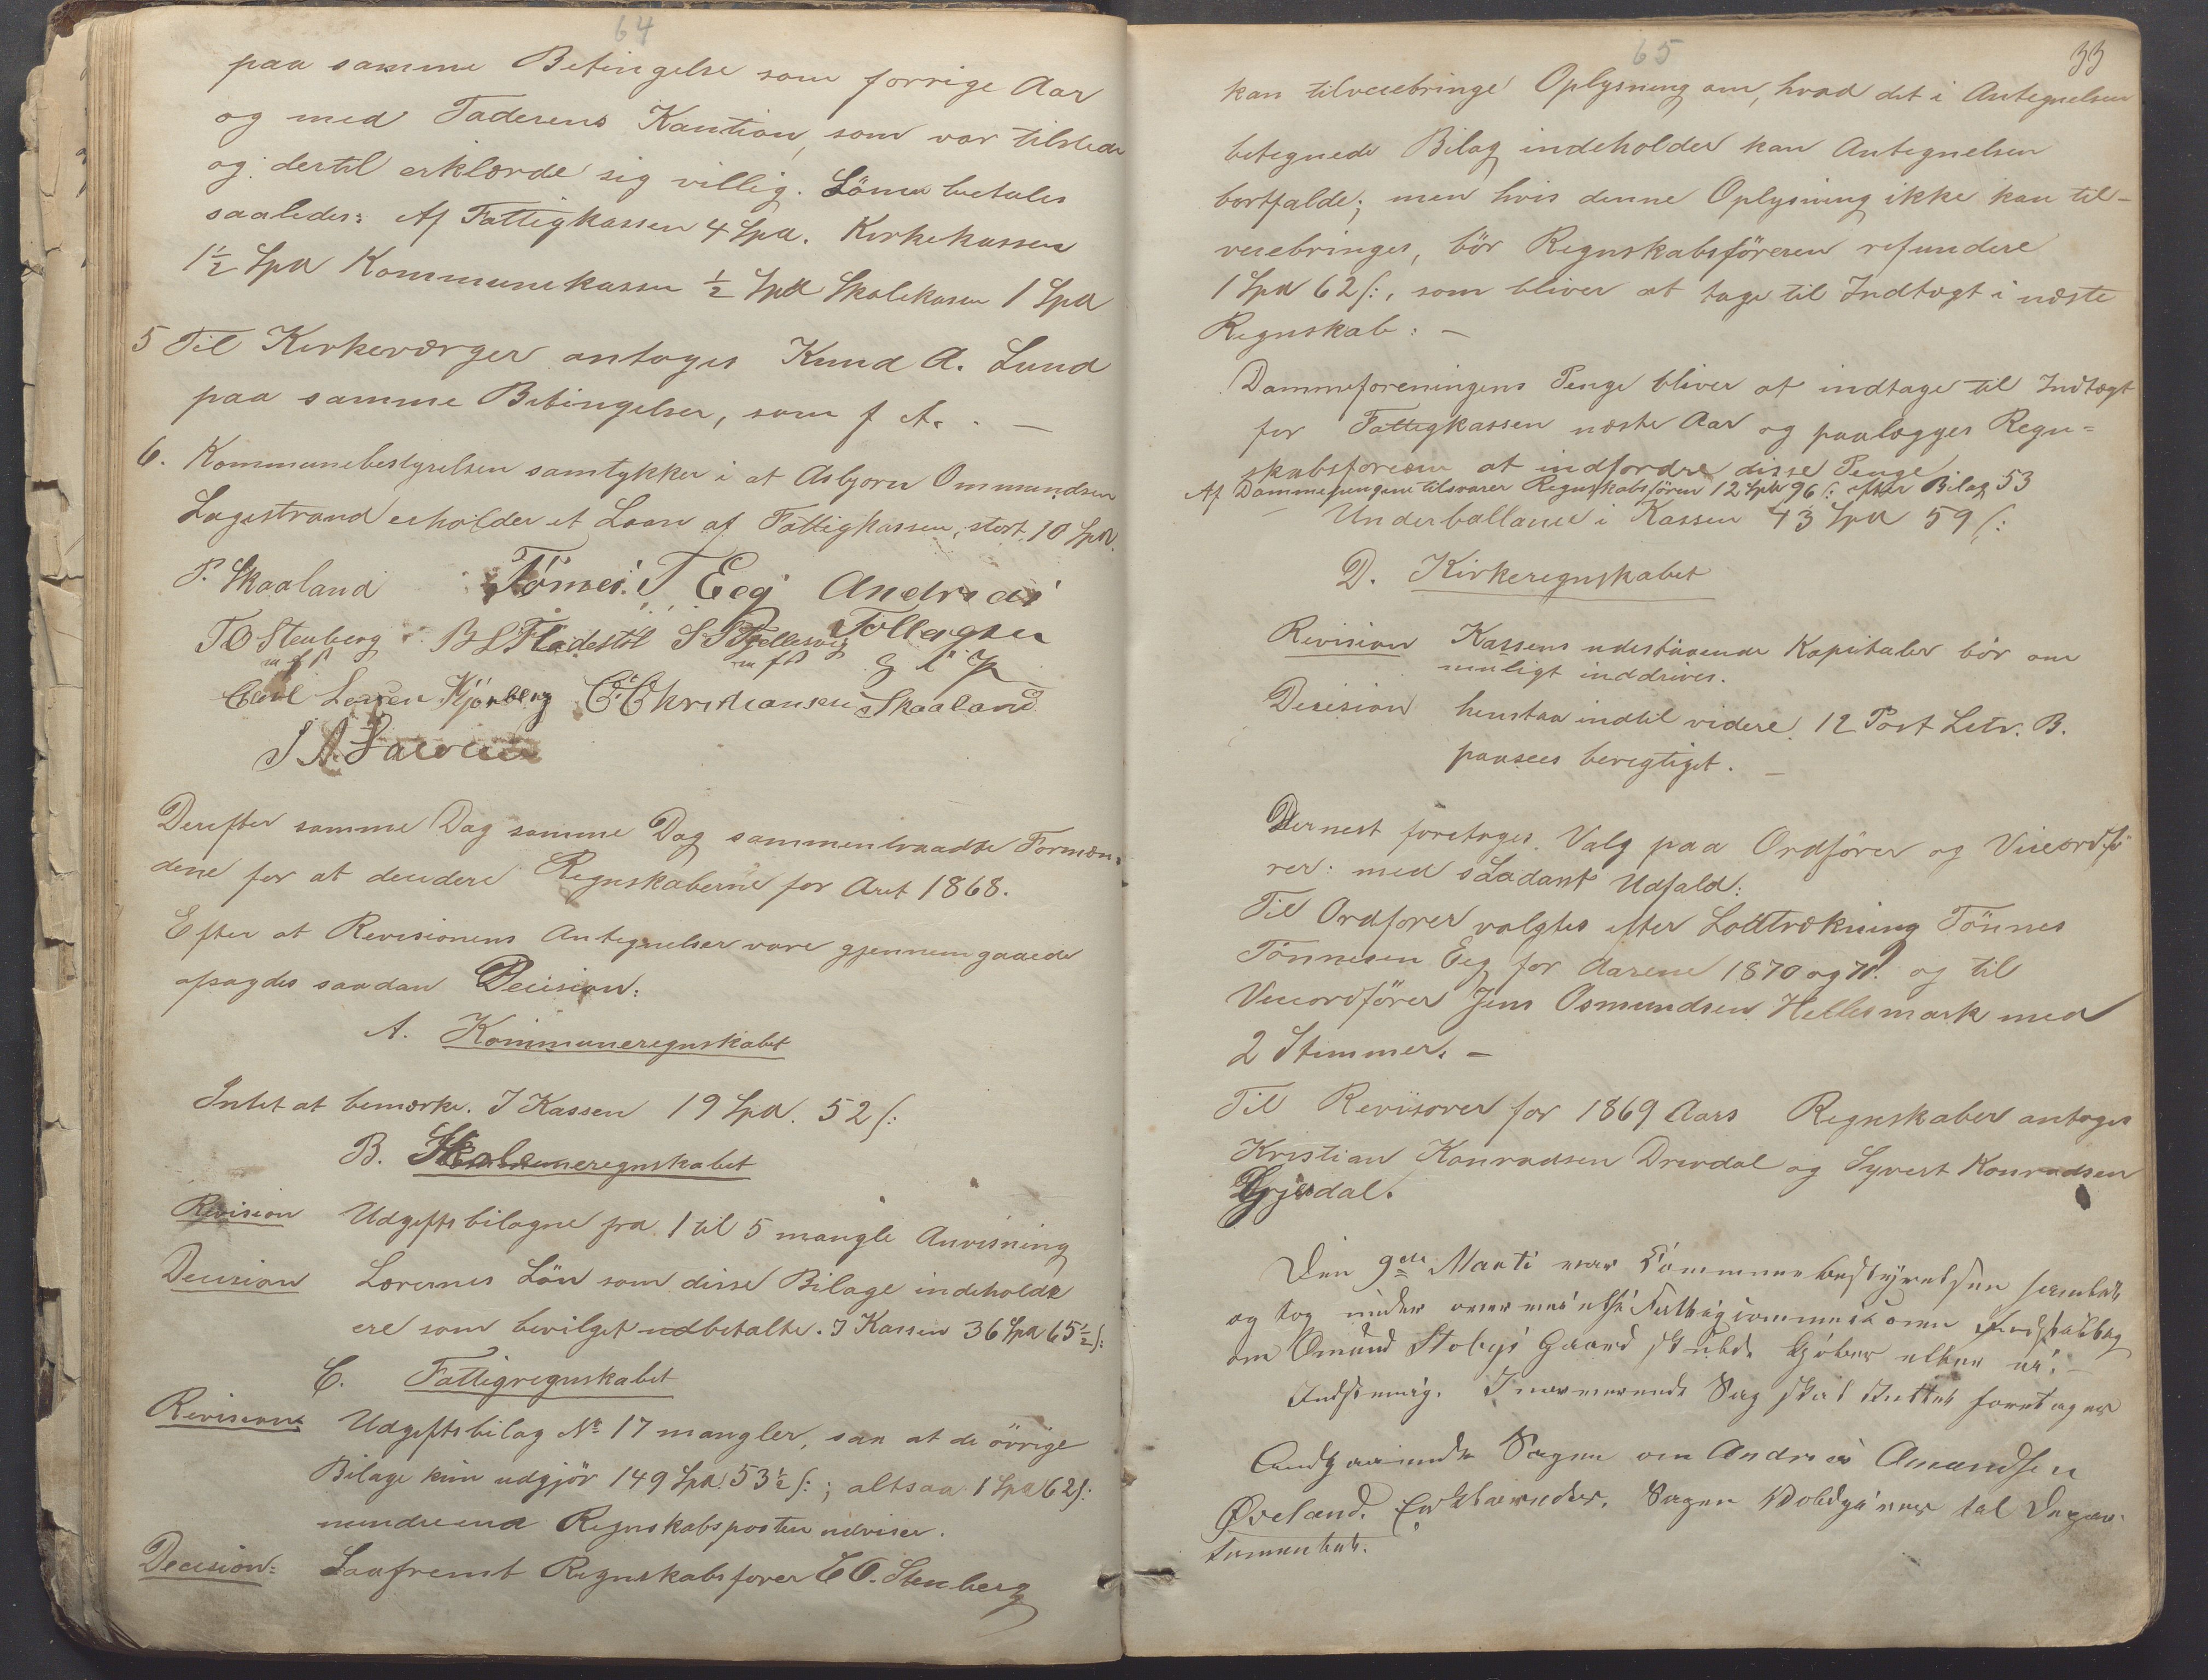 64
paa samme Betingelse som forrige Aar
og med Faderens Kaution, som var tilstede
og dertil erklærde sig villig. Lönen betales
saaledes: Af Fattigkassen 4 Spd. Kirkekassen
1 1/2 Spd Kommunekassen 1/2 Spd Skolekasen 1 Spd
5 Til Kirkeværger antoges Knud A. Lund
paa samme Betingelser, som f A. . —
6. Kommunebestyrelsen samtykker i at Asbjorn Ommundsen
Lagestrand erholder et Laan af Fattigkassen, stort 10 Spd.
P. Skaaland Tönnes. T Eeg Andreas
T O Stenberg B L Fladestöl S T Fjellesvig Tollagsen
m f P m f P
Carl Larsen Kjörberg C. Christiansen Skaaland
Derefter samme Dag samme Dag sammentraadte Formæn-
dene for at decidere Regnskaberne for Aret 1868.
Efter at Revisionens Antegnelser vare gjennemgaaede
afsagdes saadan Decision:
A. Kommuneregnskabet
Intet at bemærke. I Kassen 19 Spd. 52 ſ:
B. Skoleregnskabet
Revision Udgiftsbilagne fra 1 til 5 mangle Anvisning
Decision Lærernes Lön som disse Bilage indeholde
ere som bevilget udbetalte. I Kassen 36 Spd 65 1/2 ſ:
C. Fattigregnskabet
Revision: Udgiftsbilag No 17 mangler, saa at de övrige
Bilage kun udgjör 149 Spd. 53 1/2 ſ: ; altsaa 1 Spd 62 ſ:
mindre end Regnskabsposten udviser.
Decision: Saafremt Regnskabsforer T O. Stenberg
65
33
kan tilveiebringe Oplysning om, hvad det i Antegnelsen
betegnede Bilag indeholder kan Antegnelsen
bortfalde; men hvis denne Oplysning ikke kan til-
veiebringes, bör Regnskabsföreren refundere
1 Spd 62 ſ:, som bliver at tage til Indtægt i næste
Regnskab: —
Dammeforeningens Penge bliver at indtage til Indtægt
for Fattigkassen næste Aar og paalægges Regn=
skabsforeren at indfordre disse Penge
Af Dammepengene tilsvarer Regnskabsfören 12 Spd 96 ſ: efter Bilag 53
Underballance i Kassen 43 Spd 59 ſ:
D. Kirkeregnskabet
Revision Kassens udestaaende Kapitaler bör om
muligt inddrives.
Decision henstaa indtil videre. 12 Post Letr. B.
paasees berigtiget. —
Dernest foretoges Valg paa Ordfører og Viceordfö
rer: med saadant Udfald:
Til Ordforer valgtes efter Lodtrækning Tönnes
Tönnesen Eeg for Aarene 1870 og 71. og til
Viceordförer Jens Osmundsen Hellesmark med
2 Stemmer. —
Til Revisorer for 1869 Aars Regnskaber antoges
Kristian Konradsen Drivdal og Syvert Konradsen
Gjesdal.
Den 9de Marti var Communebestyrelsen samlet
og tog under overveielse Fattigcommissionen
om Omund Gaard skulde kjöbes eller ei. —
I nærværende Sag skal Intet foretages
Andgaaende Sagen om Andreas Omundsen
Øveland. Sagen til Depar-
tementet.